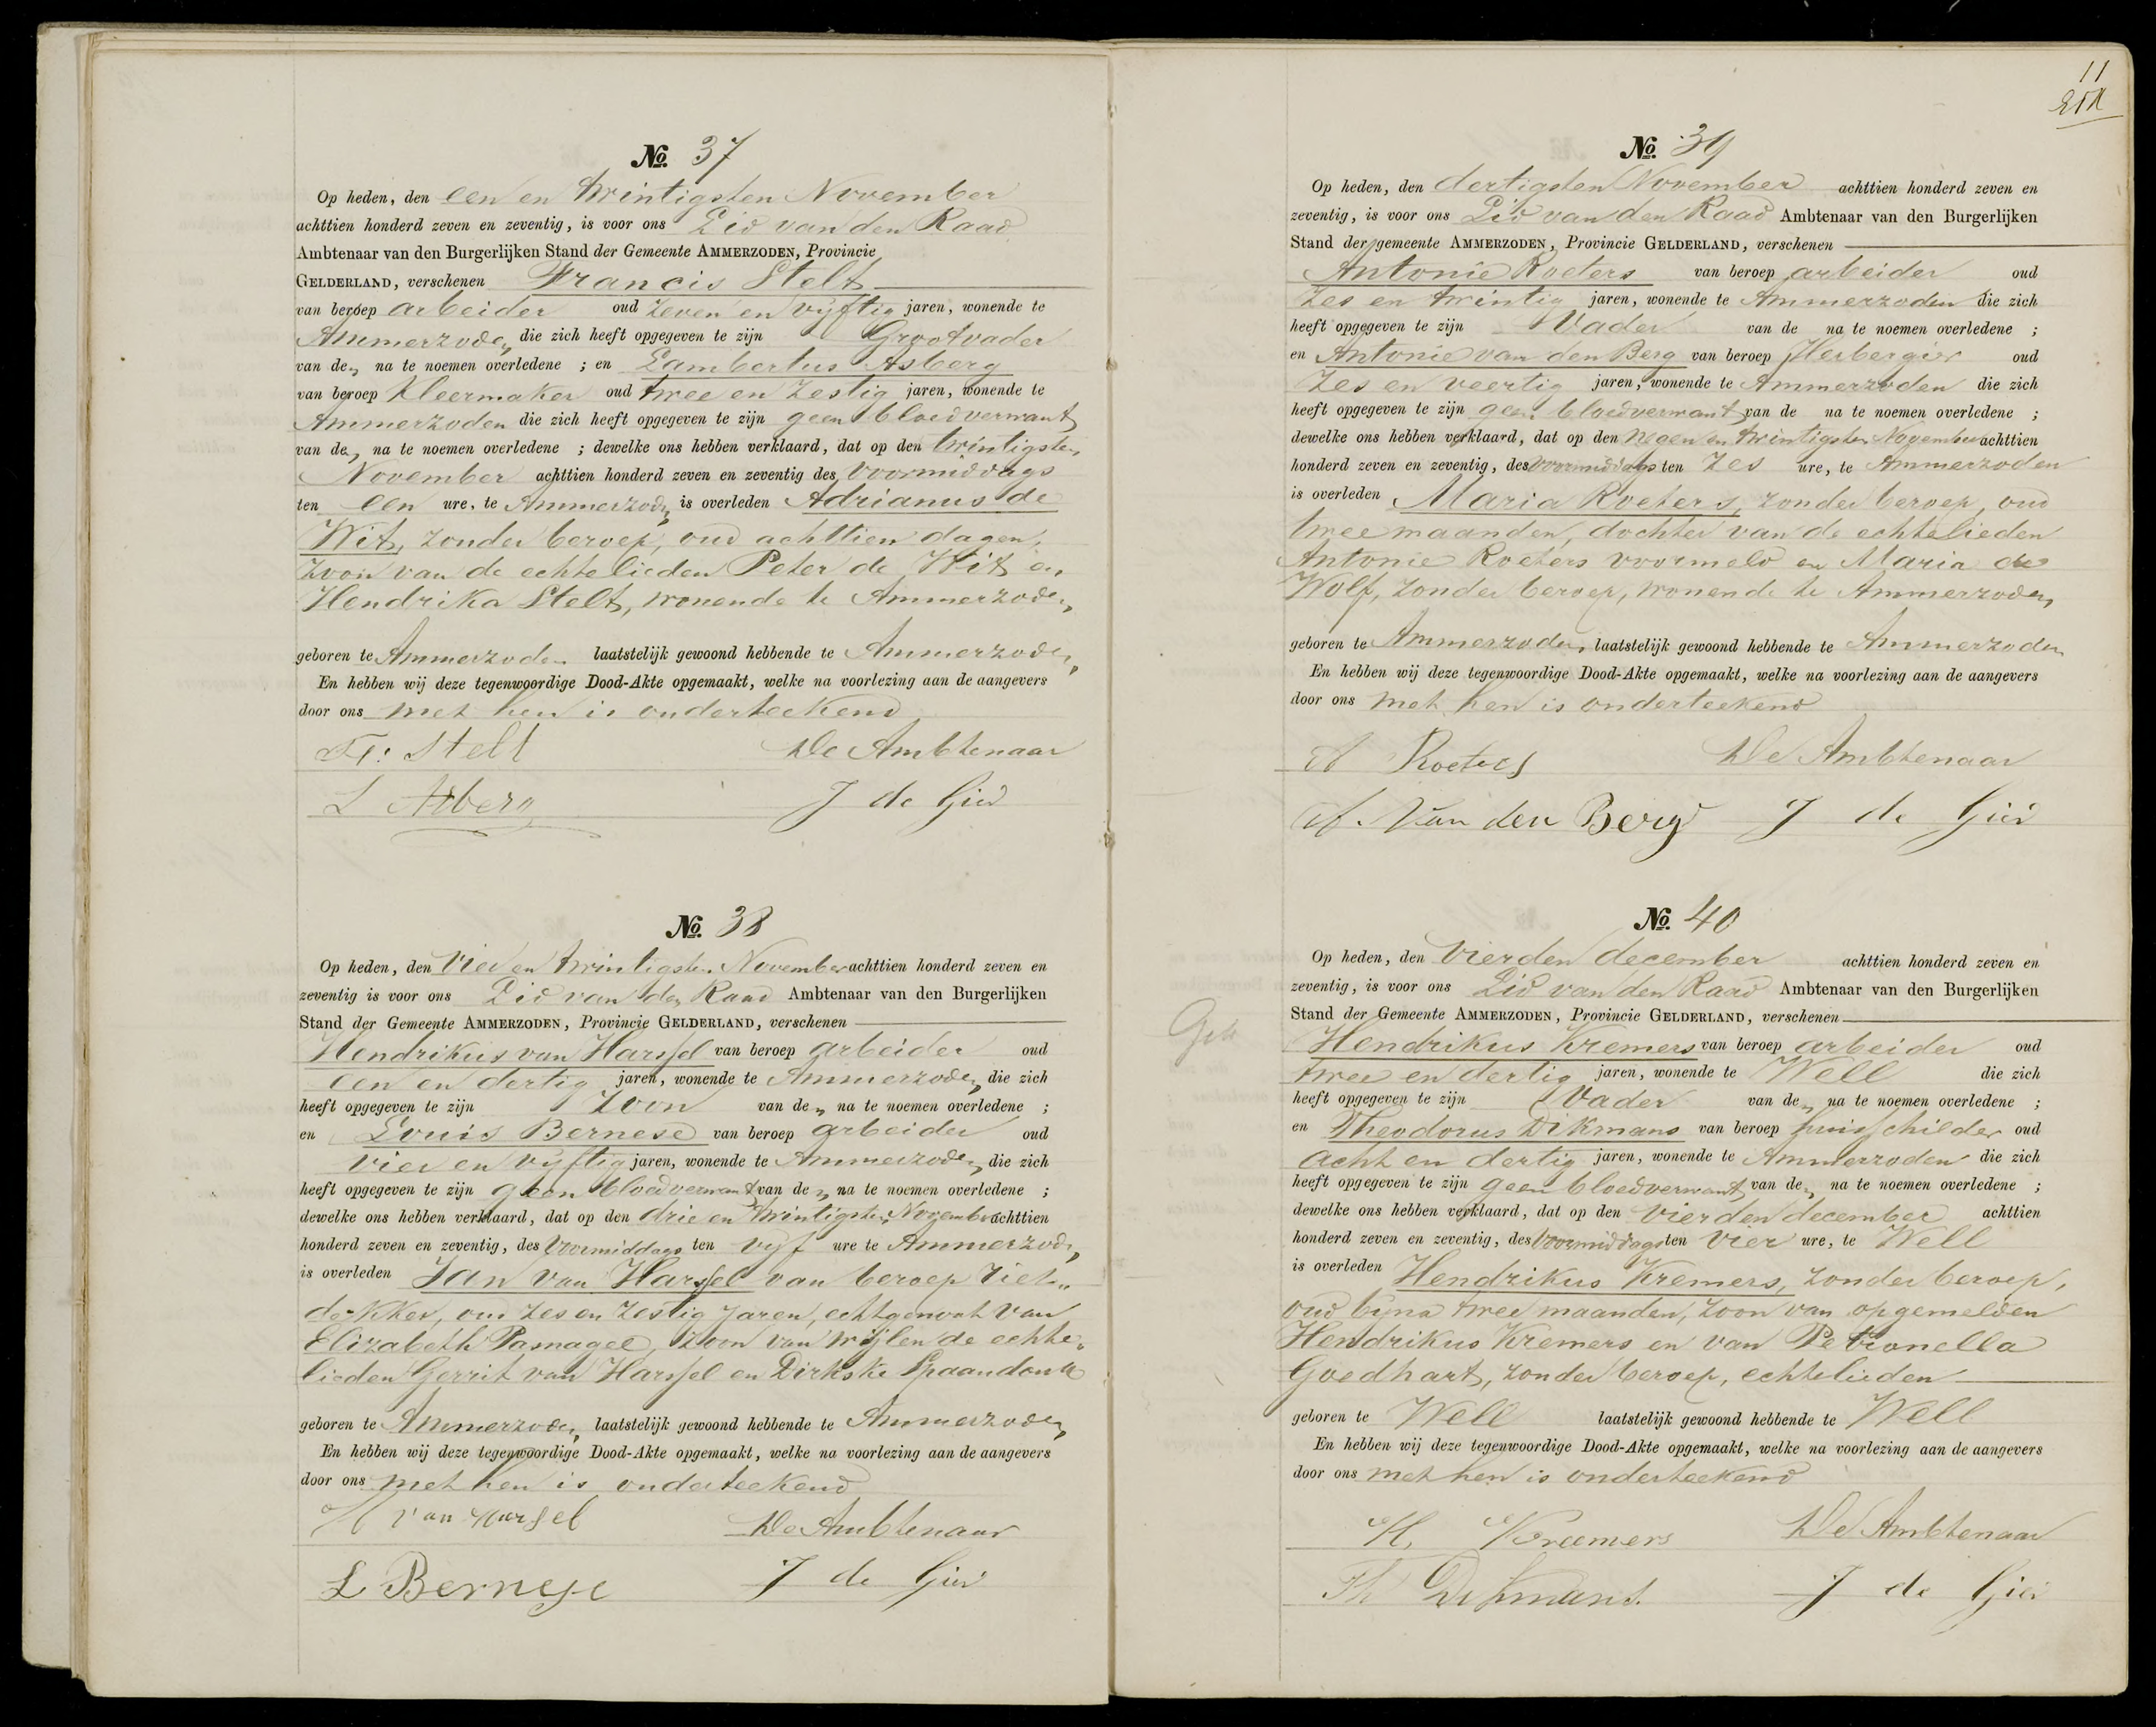 No. 37
Op heden, den een en twintigsten November
achttien honderd zeven en zeventig, is voor ons Lid van den Raad
Ambtenaar van den Burgerlijken Stand der Gemeente AMMERZODEN, Provincie
GELDERLAND, verschenen Francis Stelt
van beroep arbeider oud zeven en vyftig jaren, wonende te
Ammerzoden die zich heeft opgegeven te zijn Grootvader
van den na te noemen overledene ; en Lambertus Asberg
van beroep Kleermaker oud twee en zestig jaren, wonende te
Ammerzoden die zich heeft opgegeven te zijn geen bloedverwant
van den na te noemen overledene ; dewelke ons hebben verklaard, dat op den twintigsten
November achttien honderd zeven en zeventig des voormiddags
ten een ure, te Ammerzoden is overleden Adrianus de
Wit, zonder beroep, oud achttien dagen,
zoon van de echtelieden Peter de Wit en
Hendrika Stelt, wonende te Ammerzoden
geboren te Ammerzoden laatstelijk gewoond hebbende te Ammerzoden
En hebben wij deze tegenwoordige Dood-Akte opgemaakt, welke na voorlezing aan de aangevers
door ons met hen is onderteekend
Fr: Stelt De Ambtenaar
L Asberg J de Gier
No. 38
Op heden, den vier en twintigsten November achttien honderd zeven en
zeventig is voor ons Lid van den Raad Ambtenaar van den Burgerlijken
Stand der Gemeente AMMERZODEN, Provincie GELDERLAND, verschenen
Hendrikus van Harssel van beroep arbeider oud
een en dertig jaren, wonende te Ammerzoden die zich
heeft opgegeven te zijn Zoon van den na te noemen overledene ;
en Louis Bernese van beroep arbeider oud
vier en vyftig jaren, wonende te Ammerzoden die zich
heeft opgegeven te zijn geen bloedverwant van den na te noemen overledene ;
dewelke ons hebben verklaard, dat op den drie en twintigsten November achttien
honderd zeven en zeventig, des voormiddags ten vyf ure te Ammerzoden
is overleden Jan van Harssel van beroep riet-
dekker, oud zes en zestig jaren, echtgenoot van
Elizabeth Pamagee, zoon van wylen de echte-
lieden Gerrit van Harssel en Dirkske Spaandonk
geboren te Ammerzoden laatstelijk gewoond hebbende te Ammerzoden
En hebben wij deze tegenwoordige Dood-Akte opgemaakt, welke na voorlezing aan de aangevers
door ons met hen is onderteekend
H van Harsel De Ambtenaar
L Bernese J de Gier
11
No. 39
Op heden, den dertigsten November achttien honderd zeven en
zeventig, is voor ons Lid van den Raad Ambtenaar van den Burgerlijken
Stand der gemeente AMMERZODEN, Provincie GELDERLAND, verschenen
Antonie Roeters van beroep arbeider oud
zes en twintig jaren, wonende te Ammerzoden die zich
heeft opgegeven te zijn Vader van de na te noemen overledene ;
en Antonie van den Berg van beroep Herbergier oud
zes en veertig jaren, wonende te Ammerzoden die zich
heeft opgegeven te zijn geen bloedverwant van de na te noemen overledene ;
dewelke ons hebben verklaard, dat op den negen en twintigsten November achttien
honderd zeven en zeventig, des voormiddags ten zes ure, te Ammerzoden
is overleden Maria Roeters, zonder beroep, oud
twee maanden, dochter van de echtelieden
Antonie Roeters voormeld en Maria de
Wolf, zonder beroep, wonende te Ammerzoden
geboren te Ammerzoden, laatstelijk gewoond hebbende te Ammerzoden
En hebben wij deze tegenwoordige Dood-Akte opgemaakt, welke na voorlezing aan de aangevers
door ons met hen is onderteekend
A Roeters De Ambtenaar
A. Van den Berg J de Gier
No. 40
Op heden, den vierden december achttien honderd zeven en
zeventig, is voor ons Lid van den Raad Ambtenaar van den Burgerlijken
Stand der Gemeente AMMERZODEN, Provincie GELDERLAND, verschenen
Hendrikus Kremers van beroep arbeider oud
twee en dertig jaren, wonende te Well die zich
heeft opgegeven te zijn Vader van den na te noemen overledene ;
en Theodorus Dikmans van beroep huisschilder oud
acht en dertig jaren, wonende te Ammerzoden die zich
heeft opgegeven te zijn geen bloedverwant van den na te noemen overledene ;
dewelke ons hebben verklaard, dat op den vierden december achttien
honderd zeven en zeventig, des voormiddags ten vier ure, te Well
is overleden Hendrikus Kremers, zonder beroep,
oud byna twee maanden, zoon van opgemelden
Hendrikus Kremers en van Petronella
Goedhart, zonder beroep, echtelieden
geboren te Well laatstelijk gewoond hebbende te Well
En hebben wij deze tegenwoordige Dood-Akte opgemaakt, welke na voorlezing aan de aangevers
door ons met hen is onderteekend
H. Kreemers De Ambtenaar
Th Dikmans. J de Gier